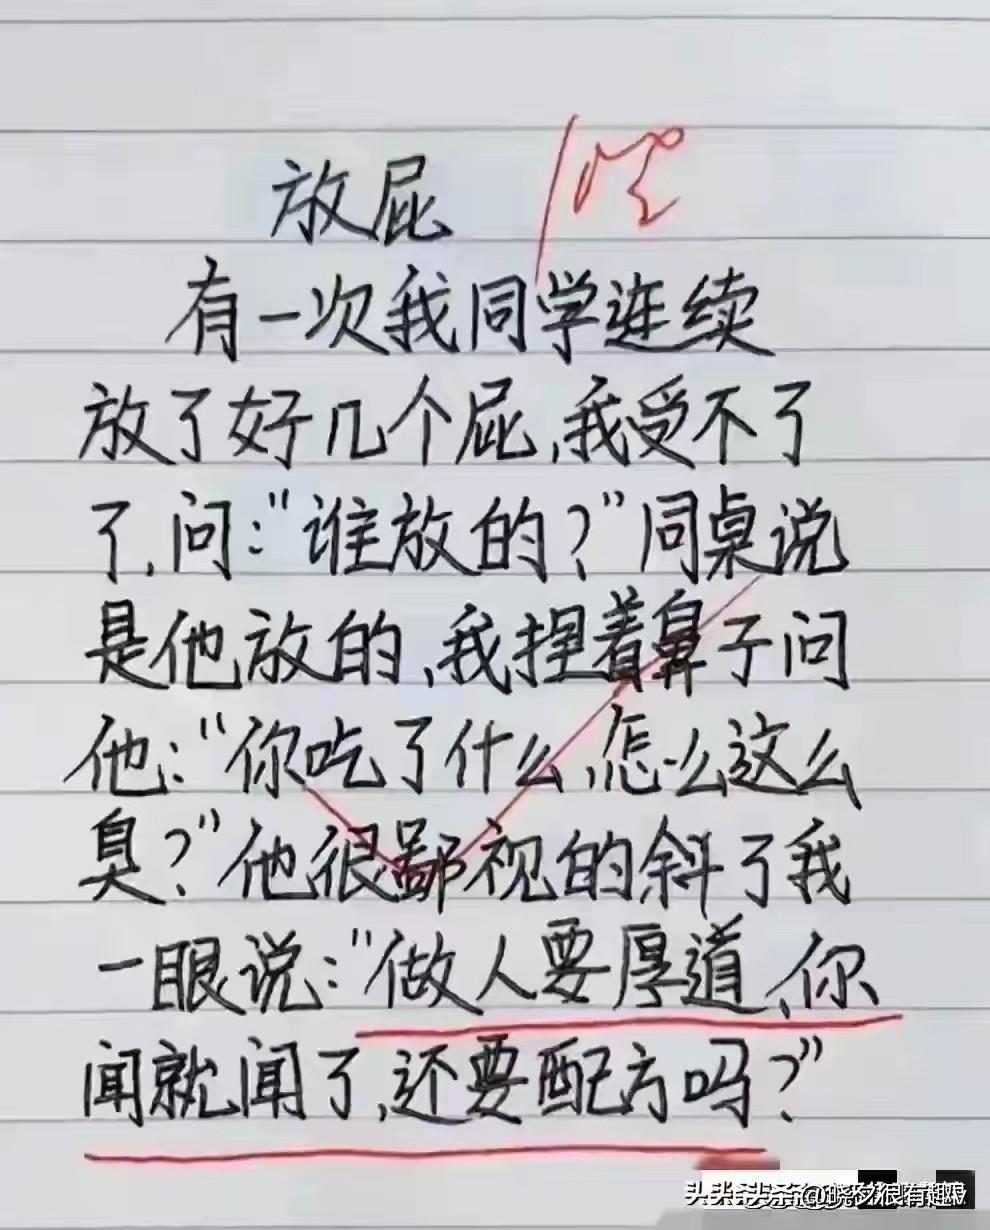 放屁
有一次我同学连续
放了好几个屁,我受不了
了,问:“谁放的?”同桌说
是他放的,我捏着鼻子问
他:“你吃了什么,怎么这么
臭?”他很鄙视的斜了我
一眼说:“做人要厚道,你
闻就闻了,还要配方吗?”